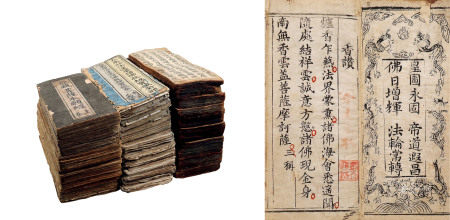 皇圖永固　帝道遐昌
佛日增輝　法輪常轉
香讚
爐香乍爇法界蒙熏諸佛海會悉遙聞
隨處結祥雲誠意方慇諸佛現全身
南無香雲蓋菩薩摩訶薩三稱